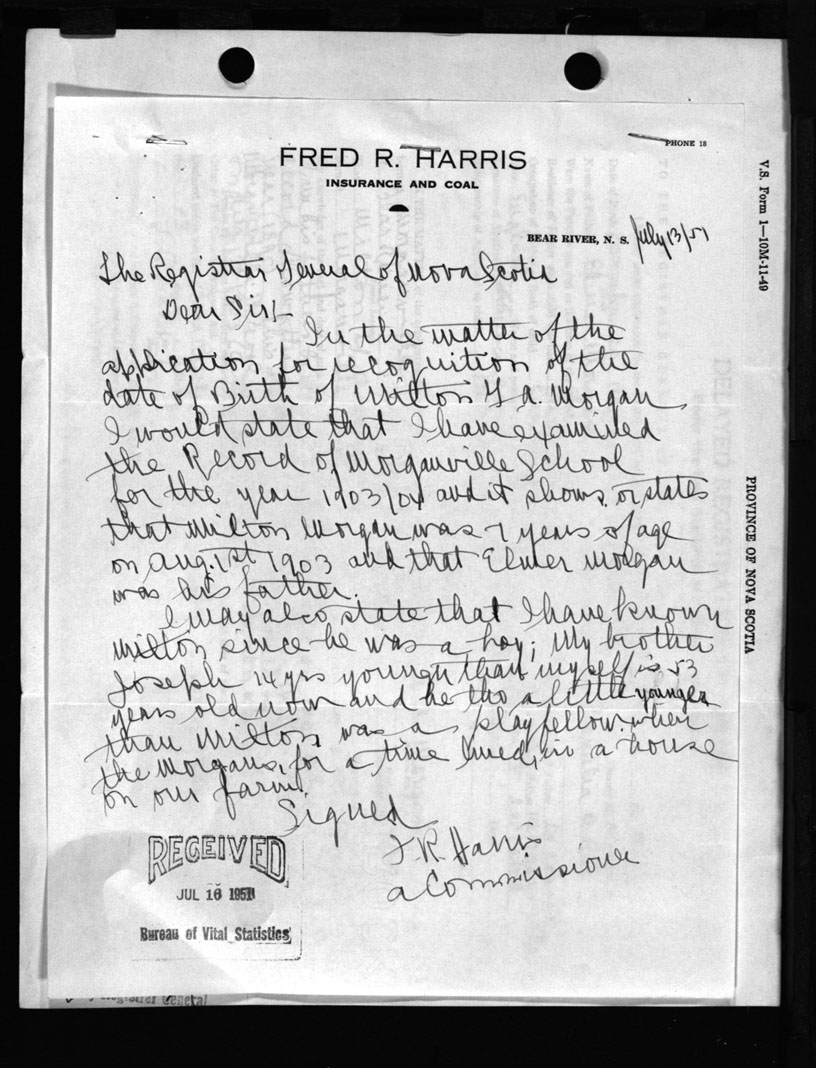 PHONE 13
FRED R. HARRIS
INSURANCE AND COAL
BEAR RIVER, N. S. July 13/51
The Registrar General of Nova Scotia
Dear Sir:-
In the matter of the
application for recognition of the
date of Birth of Milton F A. Morgan
I would state that I have examined
the Record of Morganville School
for the year 1903/04 and it shows or states
that Milton Morgan was 7 years of age
on Aug. 1st 1903 and that Elmer Morgan
was his father.
I may also state that I have known
Milton since he was a boy; My brother
Joseph 14 yrs younger than myself is 53
years old now and he tho a little younger
than Milton was a playfellow when
the Morgans, for a time lived, in a house
on our farm.
Signed
F R Harris
a Commissioner
RECEIVED
JUL 16 1951
Bureau of Vital Statistics
Registrar General
V.S. Form 1—10M-11-49
PROVINCE OF NOVA SCOTIA